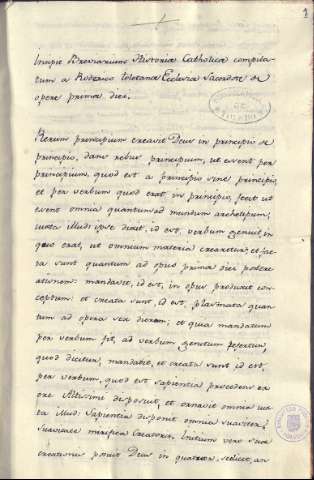 1
Incipit Breviarium Historiæ Catholicæ compila-
tum a Roderico toletanæ Ecclesiæ Sacerdote de
opere primæ diei.
Rerum principium creavit Deus in principio de
principio, dans rebus principium, ut essent per
principium, quod est a principio sine principio,
et per verbum quod erat in principio, fecit ut
essent omnia quantum ad mundum archetipum,
iuxta illud ipse dixit, id est, verbum genuit, in
quo erat, ut omnium materia crearetur, et fac-
ta sunt quantum ad opus primæ diei
mandavit, id est, in opus produxit con-
ceptum: et creata sunt, id est, plasmata quan
tum ad opera sex dierum; et quia mandatum
per verbum fit, ad verbum genitum refertur,
quod dicitur, mandavit, et creata sunt id est
per verbum, quod est sapientia procedens ex
ore Altissimi disposuit, et ornavit omnia iux
ta illud: Sapientia disponit omnia suaviter;
suavitate mirifica Creatoris. Initium vero suæ
creationis posuit Deus in quatuor, scilicet, an